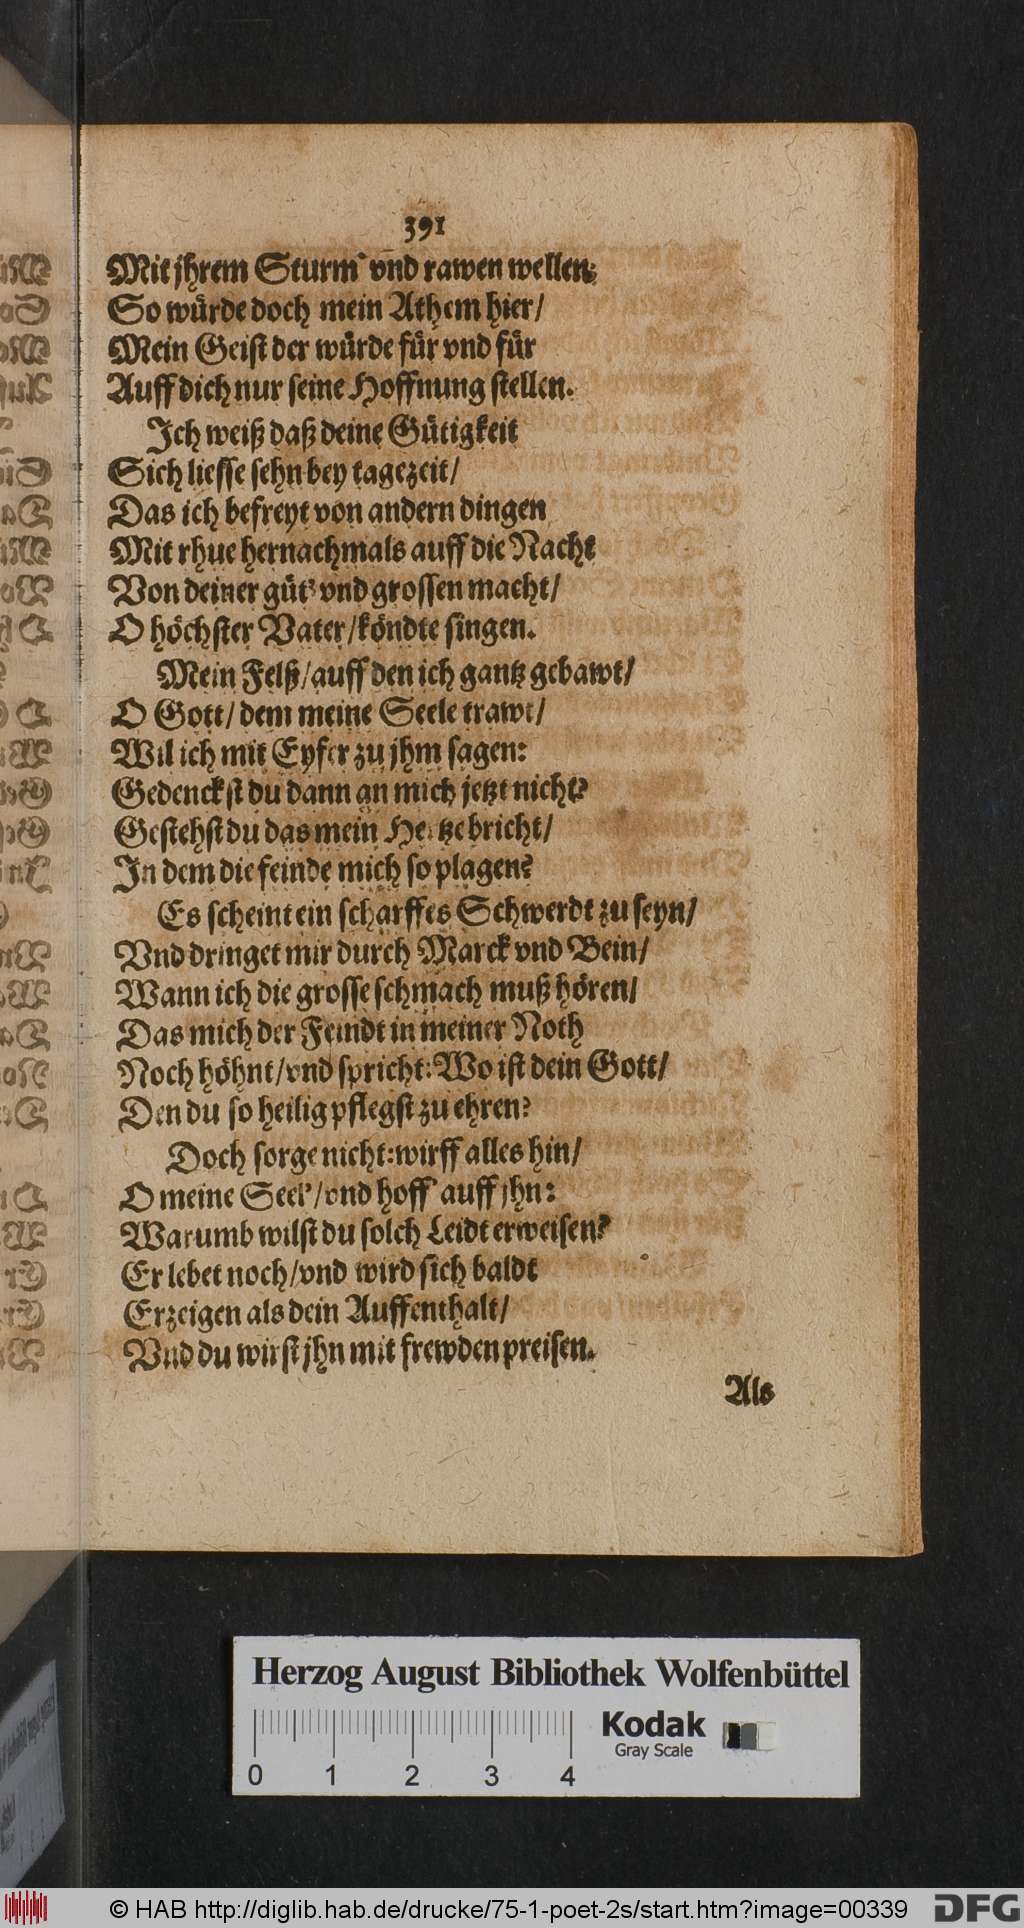 391
Mit jhrem Sturm' vnd rawen wellen;
So wuͤrde doch mein Athem hier/
Mein Geist der wuͤrde fuͤr vnd fuͤr
Auff dich nur seine Hoffnung stellen.
Ich weiß daß deine Guͤtigkeit
Sich liesse sehn bey tagezeit/
Das ich befreyt von andern dingen
Mit rhue hernachmals auff die Nacht
Von deiner guͤt' vnd grossen macht/
O hoͤchster Vater/koͤndte singen.
Mein Felß/auff den ich gantz gebawt/
O Gott/ dem meine Seele trawt/
Wil ich mit Eyfer zu jhm sagen:
Gedenckst du dann an mich jetzt nicht?
Gestehst du das mein Hertze bricht/
In dem die feinde mich so plagen?
Es scheint ein scharffes Schwerdt zu seyn/
Vnd dringet mir durch Marck vnd Bein/
Wann ich die grosse schmach muß hoͤren/
Das mich der Feindt in meiner Noth
Noch hoͤhnt/vnd spricht: Wo ist dein Gott/
Den du so heilig pflegst zu ehren?
Doch sorge nicht: wirff alles hin/
O meine Seel'/vnd hoff' auff jhn:
Warumb wilst du solch Leidt erweisen?
Er lebet noch/vnd wird sich baldt
Erzeigen als dein Auffenthalt/
Vnd du wirst jhn mit frewden preisen.
Als
Herzog August Bibliothek Wolfenbüttel
Kodak
Gray Scale
0 1 2 3 4
© HAB http://diglib.hab.de/drucke/75-1-poet-2s/start.htm?image=00339
DFG